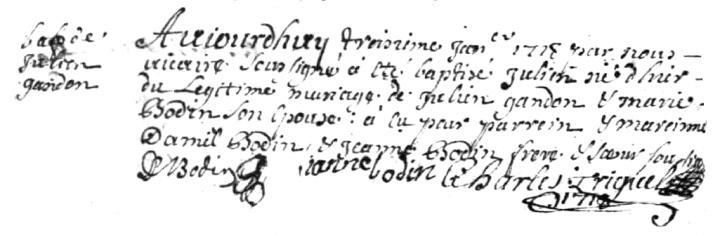 bat de
julien
gandon
Aujourdhuy treizieme jan^er 1718 par nous
vicaire sousigné à été baptizé julien né d'hier
du Legitime mariage de julien gandon & marie
Bodin son epouse : à eu pour parrein & mareinne
Daniel Bodin & jeanne Bodin frere & soeur sous
D Bodin janne bodin Charles triquel
1718